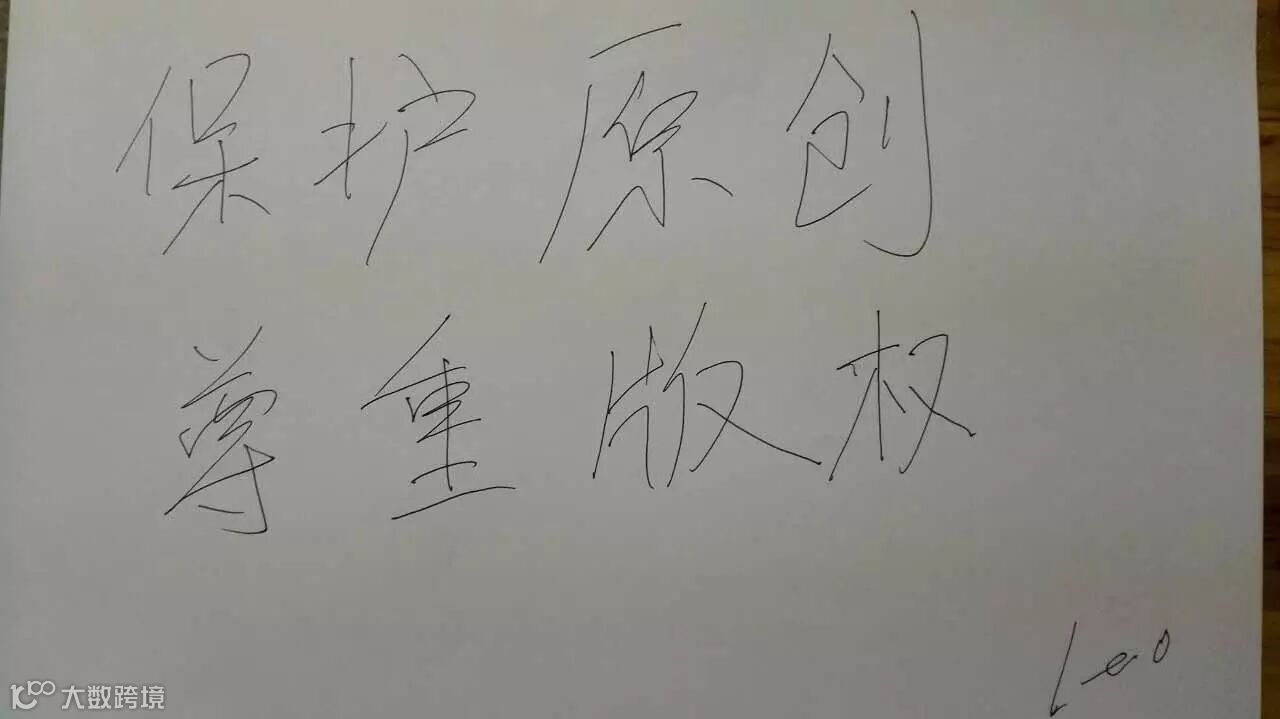 保护原创
尊重版权
Leo
大数跨境